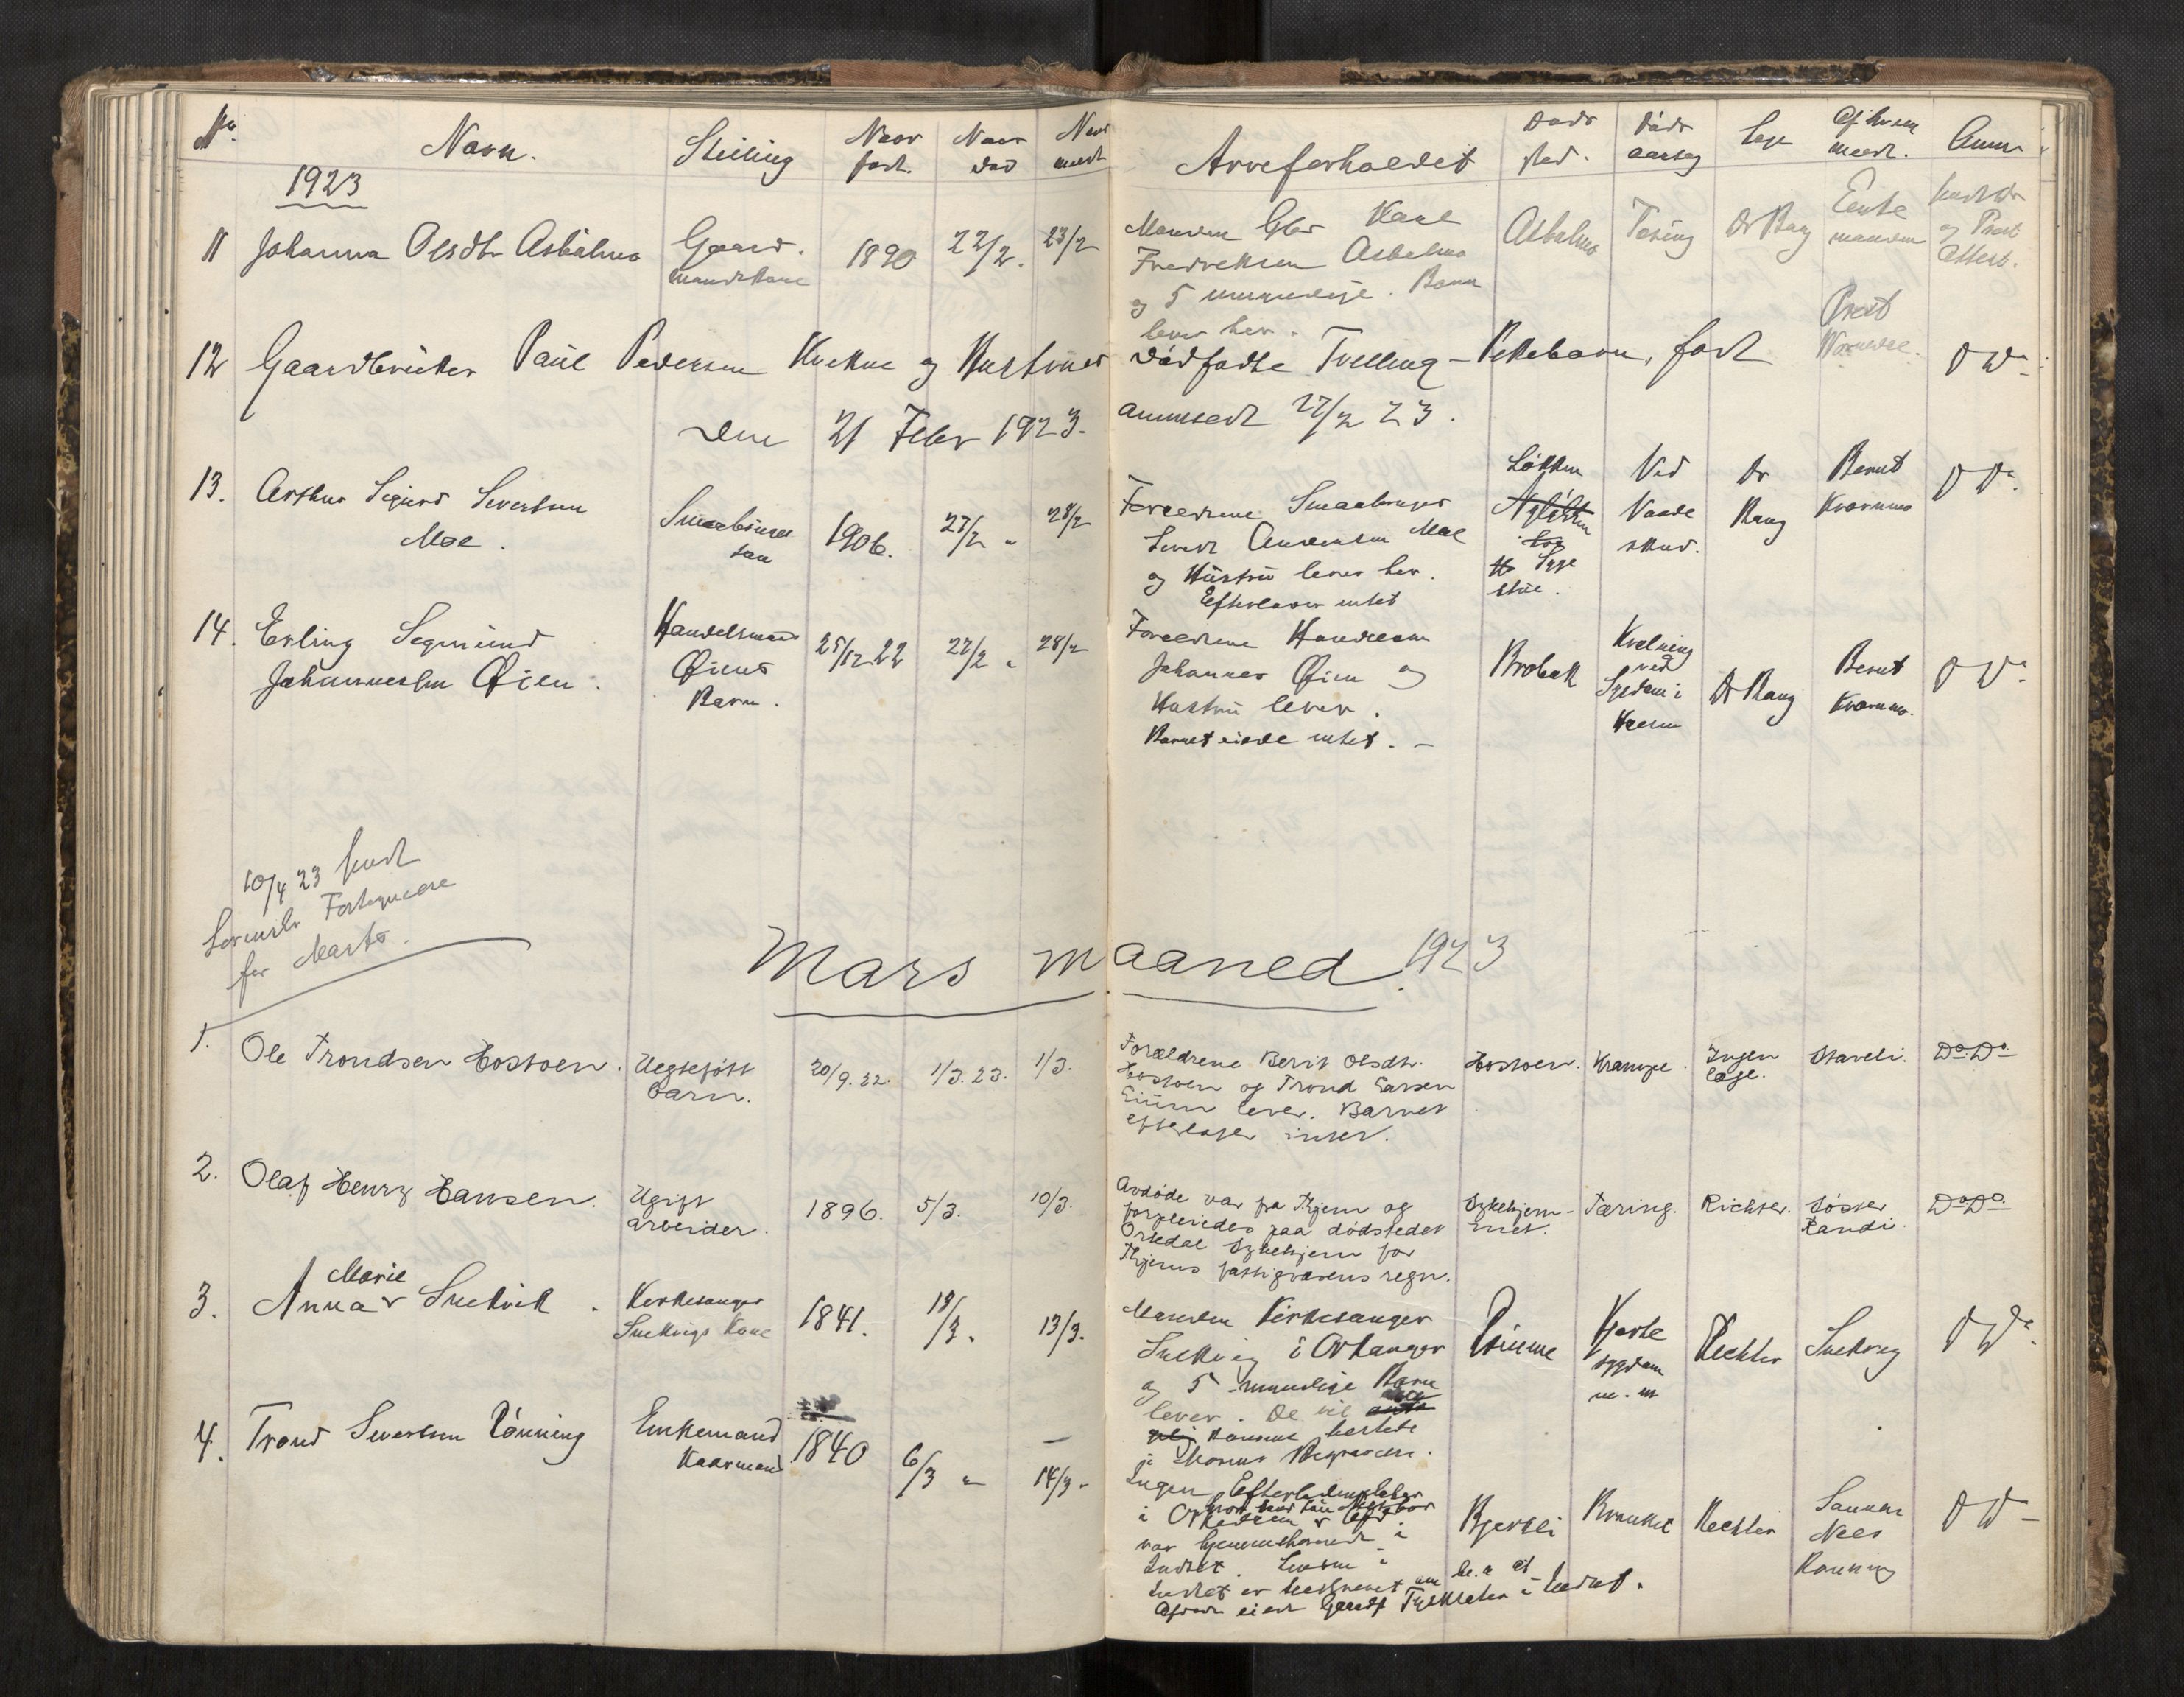 No.
Navn.
Stilling
Naar født.
Naar død
Naar meldt
Arveforholdet
Døds sted.
Døds aarsag
Læge
Af hvem meldt.
Anm.
1923
11 Johanna Olsdtr Asbølmo
Gaard.
mandskone
1890
22/2.
23/2
Manden Gbr Karl
Fredreksen Asbølmo
og 5 umyndige. Barn
lever her.
Asbølmo
Tæring
Dr Bang
Enke
manden
og Præst
Attest.
12 Gaardbruker Paul Pedersen Kvekne og Hustrues dødfødte Tvilling-Pikebarn, født
Præst
D Do
den 21 Febr 1923.
anmeldt 27/2 23.
13. Arthur Sigurd Sivertsen
Moe.
Smaabruger
søn
1906.
27/2 "
28/2
Forældrene Smaabruger
Sivert Andersen Moe
og Hustru lever her.
Efterlader intet
Løkken
Syge
stue.
Ved
Vaade
skud.
Dr
Bang
Bernt
Kvammo
D Do.
14. Erling Segmund
Johannesen Øien.
Handelsmand
Øiens
Barn.
25/12 22
27/2 "
28/2
Forældrene Handelsm
Johannes Øien og
Hustru lever.
Barnet eiede intet. -
Brobak
Kvelning
ved
Sygdom i
Halsen
Dr Bang
Bernt
Kvammo.
D Do.
10/4 23 sendt
Sorenskr Fortegnelse
for Marts.
Mars maaned. 1923
1. Ole Trondsen Hostoen.
Uegtefødt
barn.
20/9.22.
1/3.23.
1/3.
Forældrene Berit Olsdtr.
Hostoen og Trond Larsen
Eium lever. Barnet
efterlater intet.
Hostoen.
Krampe.
Ingen
læge.
Stavli.
Do Do
2. Olaf Henry Hansen.
Ugift
arbeider.
1896.
5/3.
10/3.
Avdøde var fra Thjem og
forpleiedes paa dødstedet
Orkedal Sykehjem for
Thjems fattigvæsens regn.
Sykehjem-
met.
Tæring.
Richter.
Søster
Randi.
Do Do
3. Anna Marie Snekvik.
Kirkesanger
Snekvigs Kone
1841.
13/3.
13/3.
Manden Kirkesanger
Snekvig i Orkanger
og 5 myndige Barn
lever. De vil
komme
Rømme
Hjerte
sygdom
m. m
Richter
Snekvig
D Do.
4. Trond Sivertsen Rønning
Enkemand
Kaarmand
1840
6/3 "
14/3.
Ingen Efterladenskaber
i Orkedalen
var hjemmehørende i
Indset.
Afdøde eiet
i Indset.
Bjerkli
Bronkit
Richter
Sønnen
Nils
Rønning
D Do